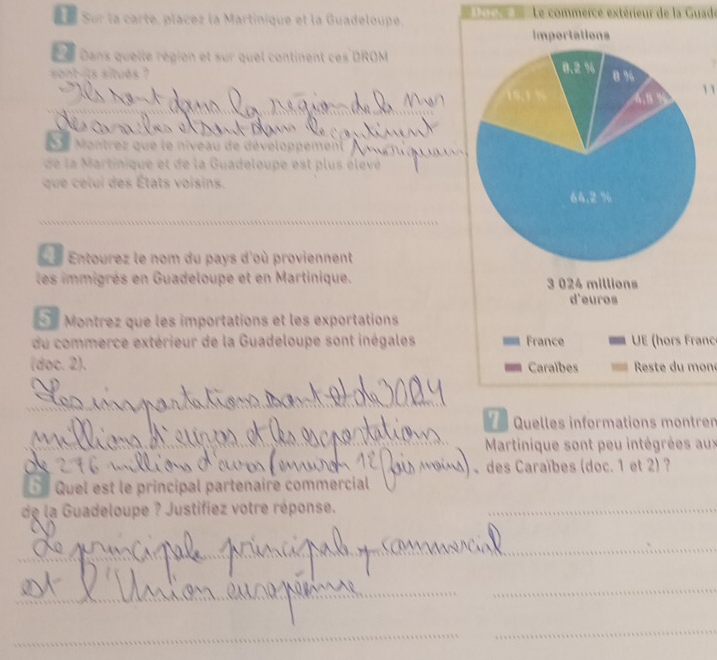 1 Sur la carte, placez la Martinique et la Guadeloupe.
2 Dans quelle région et sur quel continent ces DROM
sont-ils situés ?
Ils sont dans la région de la Mer
des caraïbes et sont dans le continent
Américain
3 Montrez que le niveau de développement
de la Martinique et de la Guadeloupe est plus élevé
que celui des États voisins.
4 Entourez le nom du pays d'où proviennent
les immigrés en Guadeloupe et en Martinique.
5 Montrez que les importations et les exportations
du commerce extérieur de la Guadeloupe sont inégales
(doc. 2).
Les importations sont de 3024
millions d'euros et les exportations
de 276 millions d'euros (environ 12 fois moins).
6 Quel est le principal partenaire commercial
de la Guadeloupe ? Justifiez votre réponse.
Le principale commercial
est l'Union européenne
Doc. 2 Le commerce extérieur de la Guad
Importations
8,2 %
8 %
4,5 %
15,1 %
64,2 %
11
3 024 millions
d'euros
France
UE (hors Franc
Caraïbes
Reste du mon
7 Quelles informations montren
Martinique sont peu intégrées aux
des Caraïbes (doc. 1 et 2) ?